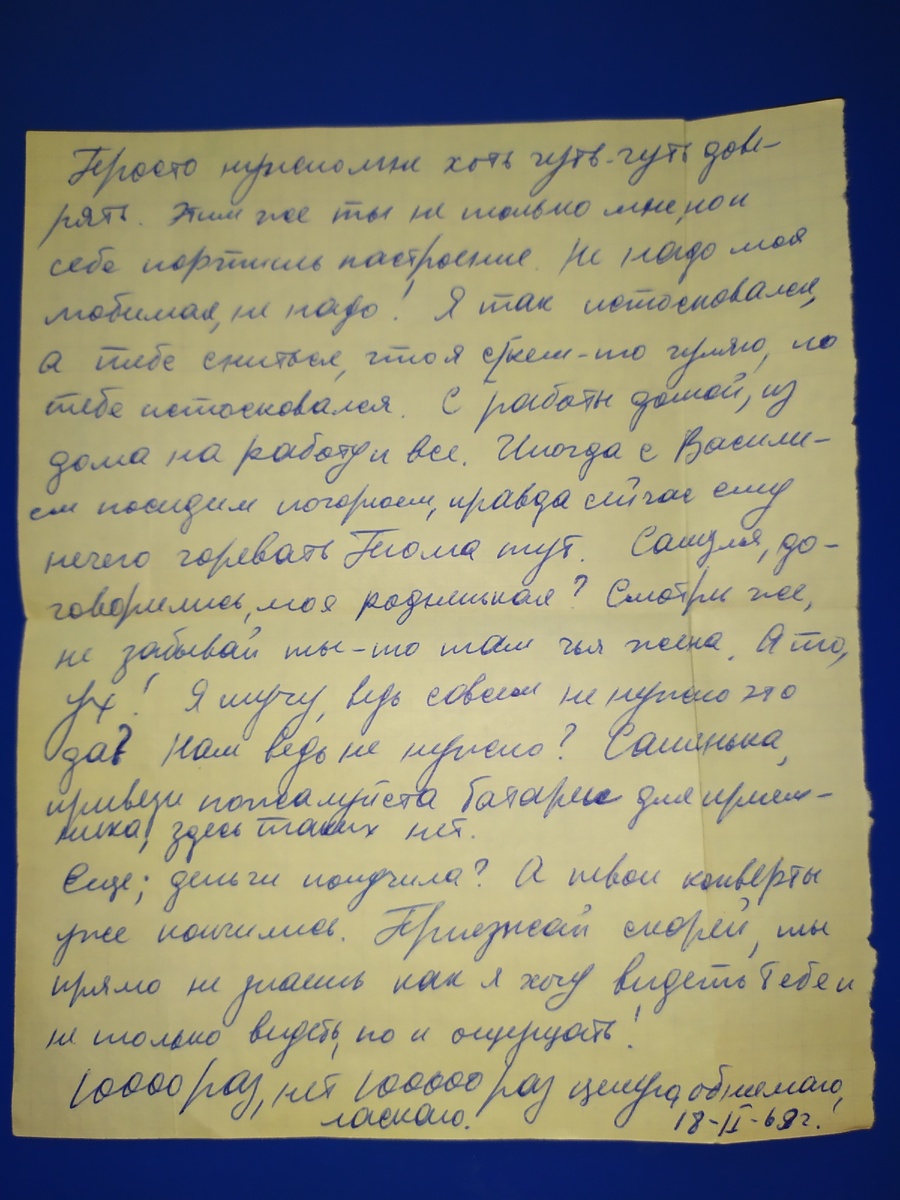 Просто нужно мне хоть чуть-чуть дове-
рять. Этим же ты не только мне, но и
себе портишь настроение. Не надо моя
любимая, не надо! Я так истосковался,
а тебе сниться, что я с кем-то гуляю, по
тебе истосковался. С работы домой, из
дома на работу и все. Иногда с Васили-
ем посидим погорюем, правда сейчас ему
нечего горевать Тома тут. Сашуля, до-
говорились, моя родненькая? Смотри же,
не забывай ты-то там чья жена. А то,
ух! Я шучу, ведь совсем не нужно это
да? Нам ведь не нужно? Сашинька,
привези пожалуйста батареи для прием-
ника, здесь таких нет.
Еще; деньги получила? А твои конверты
уже кончились. Приезжай скорей, ты
прямо не знаешь как я хочу видеть тебя и
не только видеть, но и ощущать!
10000 раз, нет 100000 раз целую, обнимаю,
ласкаю.
18-II-69г.